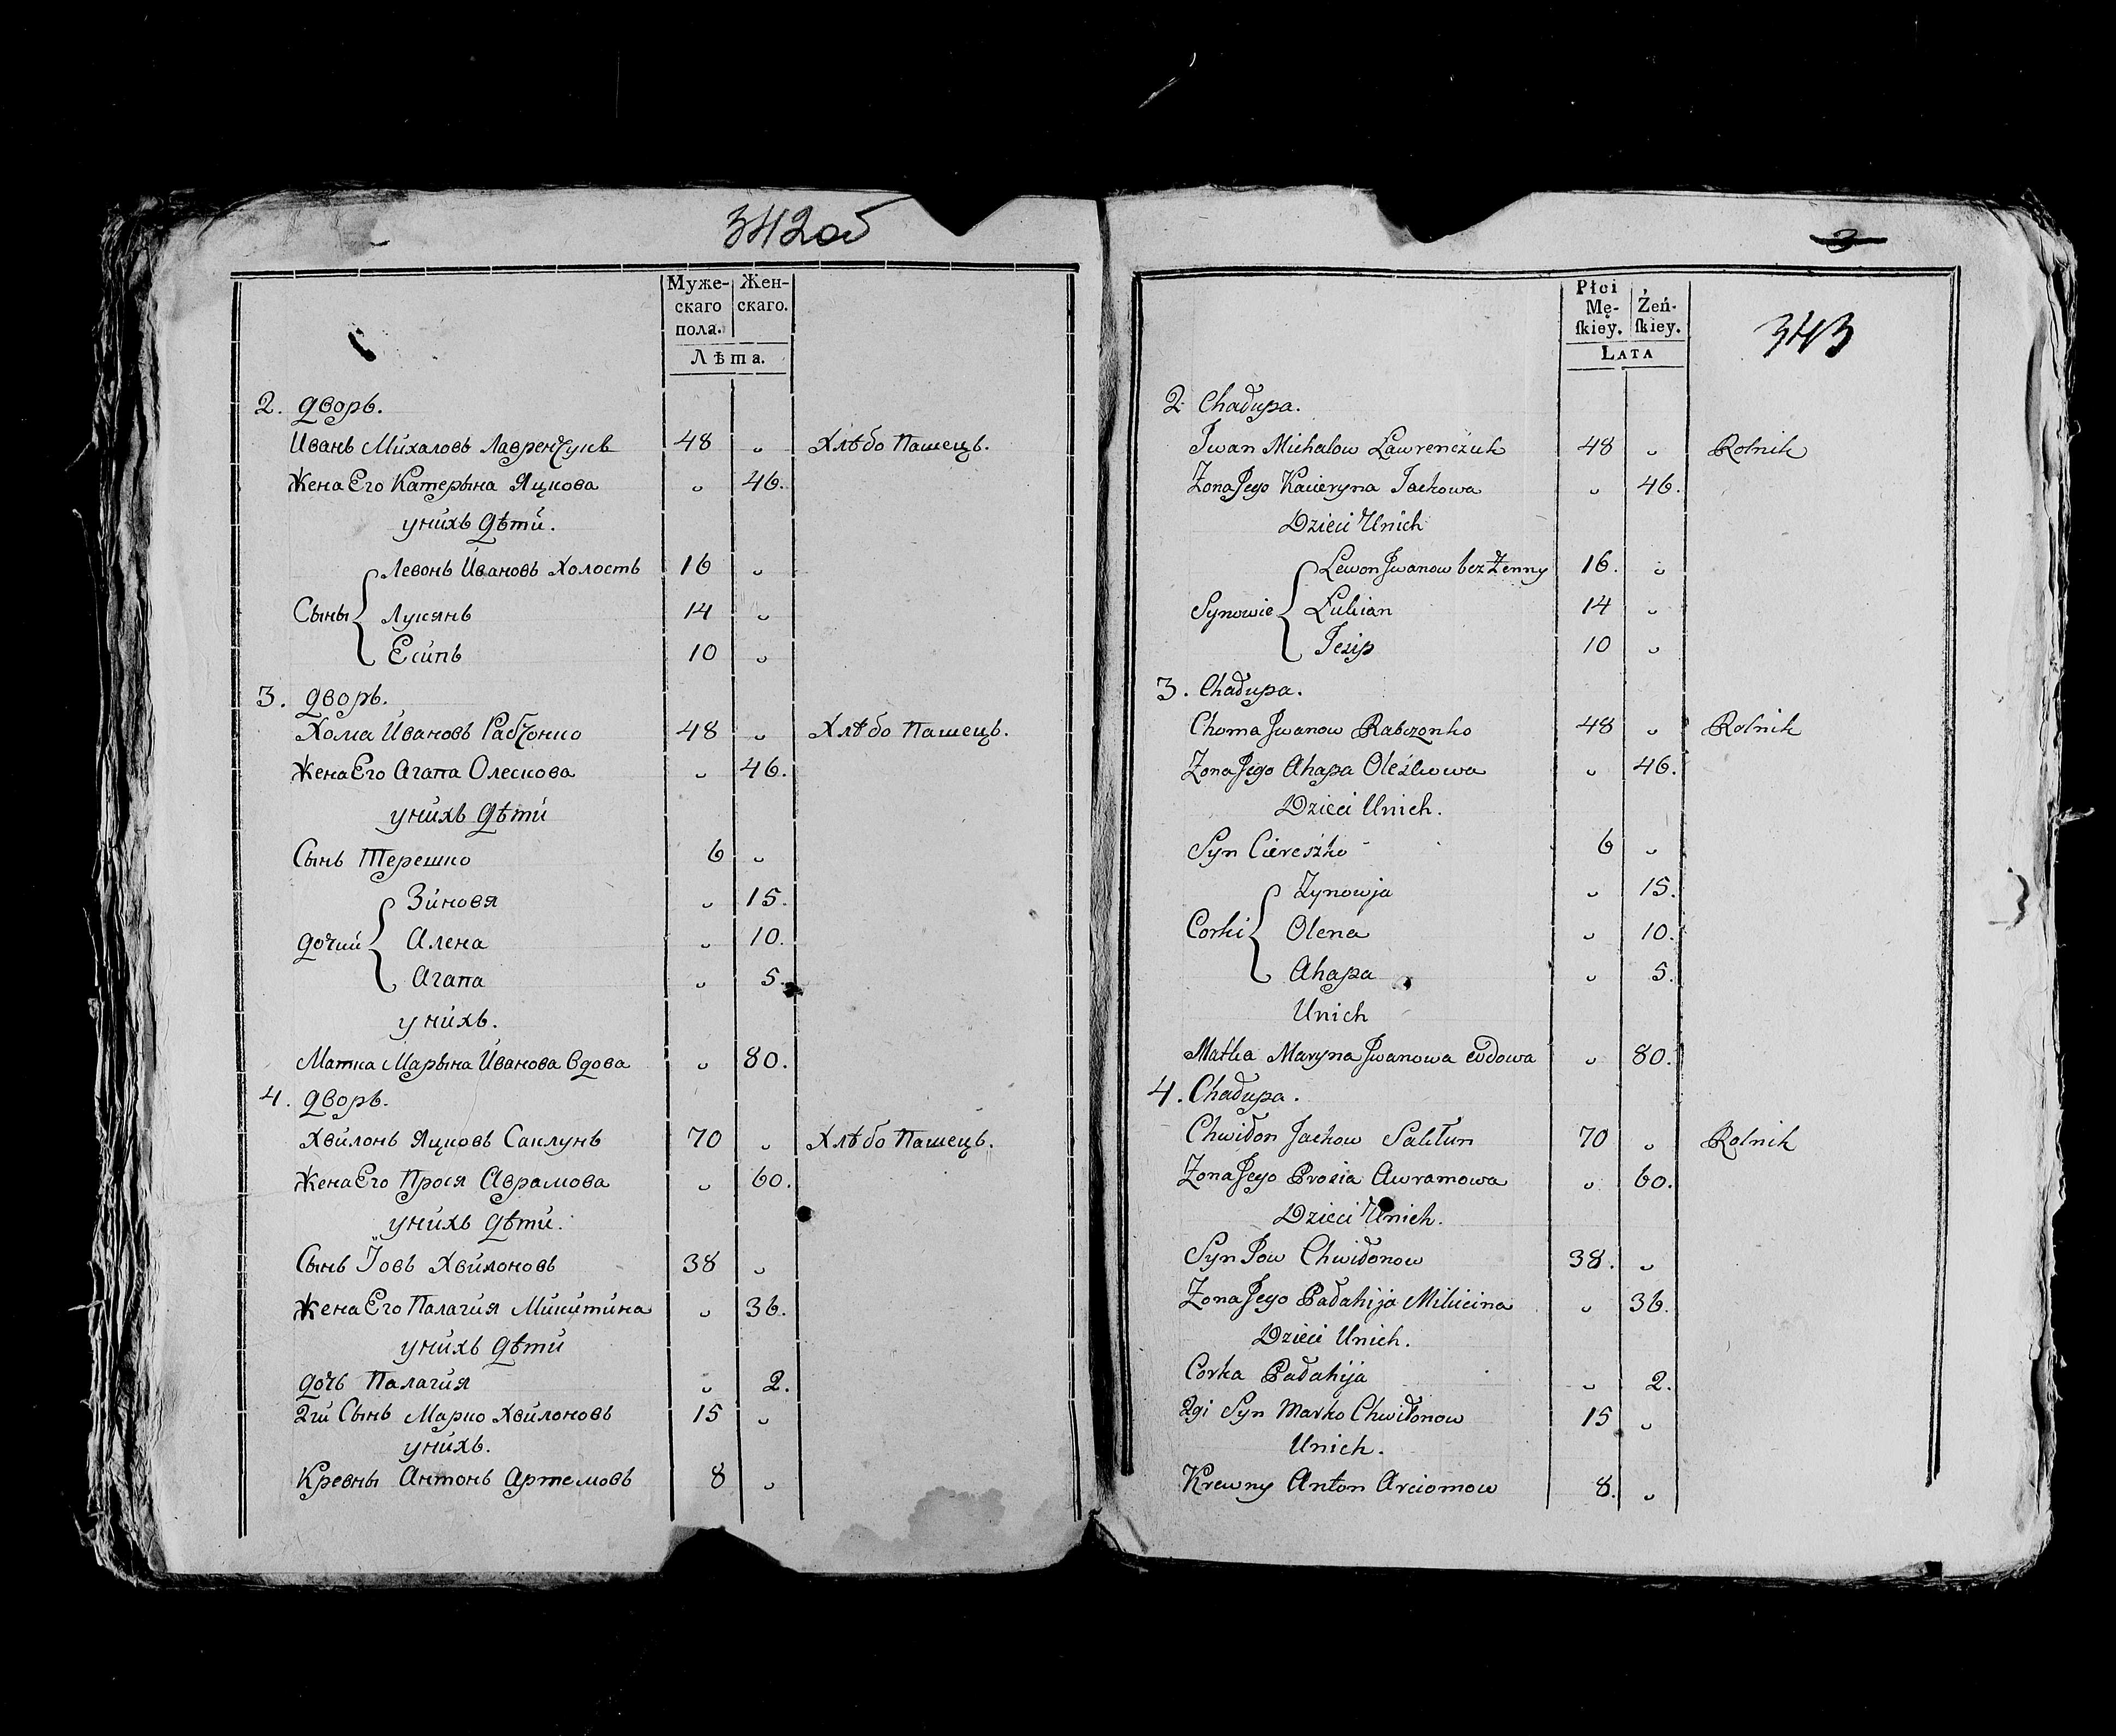 342об
Муже-
скаго
пола.
Жен-
скаго.
Лѣта.
2. дворъ.
Иванъ Михаловъ Лавренчукъ 48 „ Хлѣбо Пашецъ.
Жена Его Катерына Яцкова „ 46.
унихъ дѣти.
Левонъ Ивановъ Холостъ 16 „
Сыны Лукянъ 14 „
Есипъ 10 „
3. дворъ.
Хома Ивановъ Рабчонко 48 „ Хлѣбо Пашецъ.
Жена Его Агапа Олескова „ 46.
унихъ дѣти
Сынъ Терешко 6 „
Зиновя „ 15.
дочки Алена „ 10.
Агапа „ 5.
унихъ.
Матка Марына Иванова вдова „ 80.
4. дворъ.
Хвилонъ Яцковъ Саклунъ 70 „ Хлѣбо Пашецъ.
Жена Его Прося Аврамова „ 60.
унихъ дѣти.
Сынъ Іовъ Хвилоновъ 38 „
Жена Его Палагия Микитина „ 36.
унихъ дѣти
дочъ Палагия „ 2.
2гй Сынъ Марко Хвилоновъ 15 „
унихъ.
Кревны Антонъ Артемовъ 8 „
3
343
Płci
Mę-
ſkiey.
Żeń-
ſkiey.
LATA
2. Chałupa.
Jwan Michałow Ławrenczuk 48 „ Rolnik
Zona Jego Kacieryna Jackowa „ 46.
Dzieci Unich
Lewon Jwanow bez Zenny 16. „
Synowie Łukian 14 „
Jesip 10 „
3. Chałupa.
Choma Jwanow Rabczonko 48 „ Rolnik
Zona Jego Ahapa Oleśkowa „ 46.
Dzieci Unich.
Syn Ciereszko 6 „
Zynowja „ 15.
Corki Olena „ 10.
Ahapa „ 5.
Unich
Matka Maryna Jwanowa wdowa „ 80.
4. Chałupa.
Chwiłon Jackow Sakłun 70 „ Rolnik
Zona Jego Prosia Awramowa „ 60.
Dzieci Unich.
Syn Jow Chwiłonow 38. „
Zona Jego Pałahija Mikicina „ 36.
Dzieci Unich.
Corka Pałahija „ 2.
2gi Syn Marko Chwiłonow 15 „
Unich.
Krewny Anton Arciomow 8. „